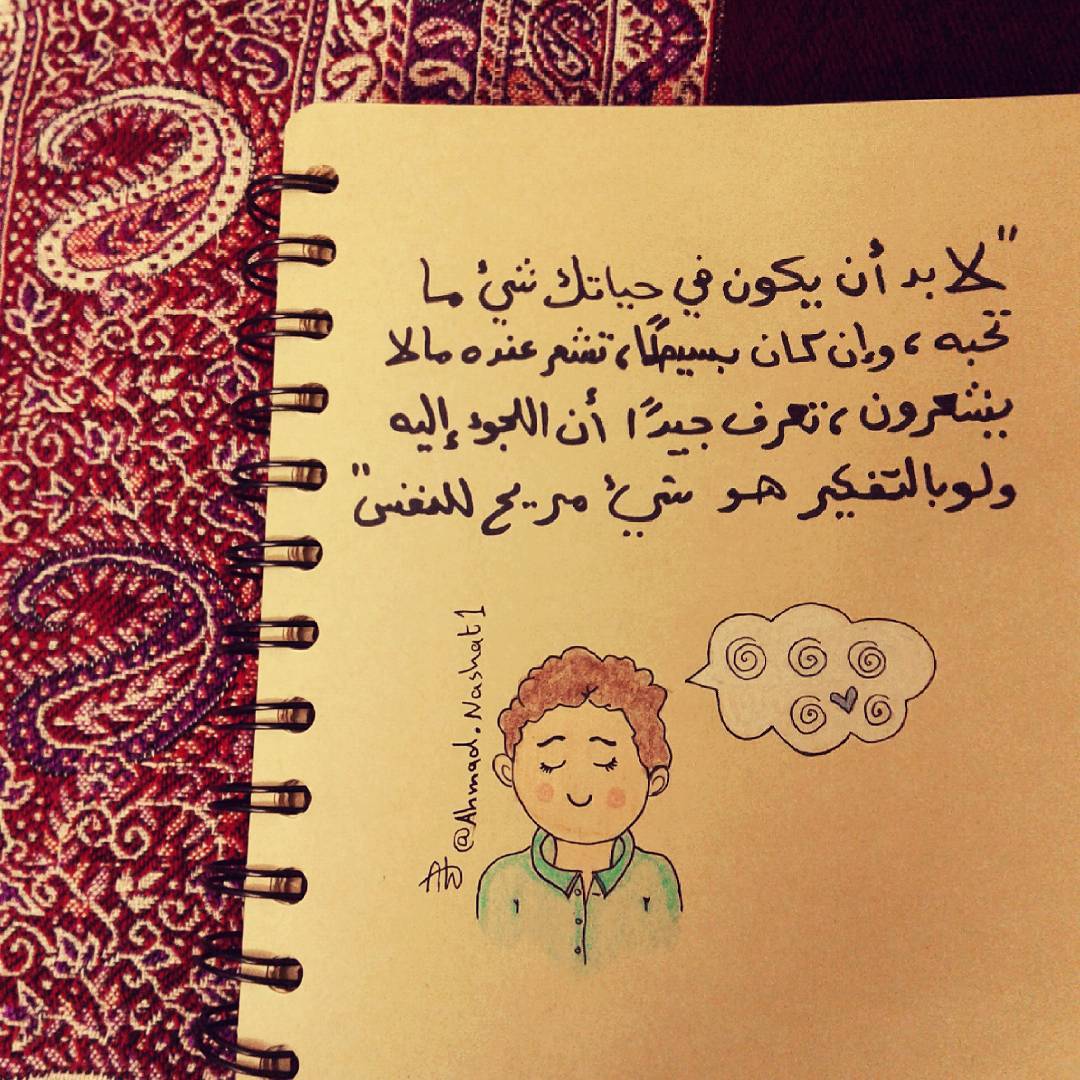 "لا بد أن يكون في حياتك شيئ ما
تحبه ، وإن كان بسيطًا، تشعر عنده مالا
يشعرون ، تعرف جيدًا أن اللجوء إليه
ولو بالتفكير هو شيئ مريح للنفس"
@Ahmad.Nashat1